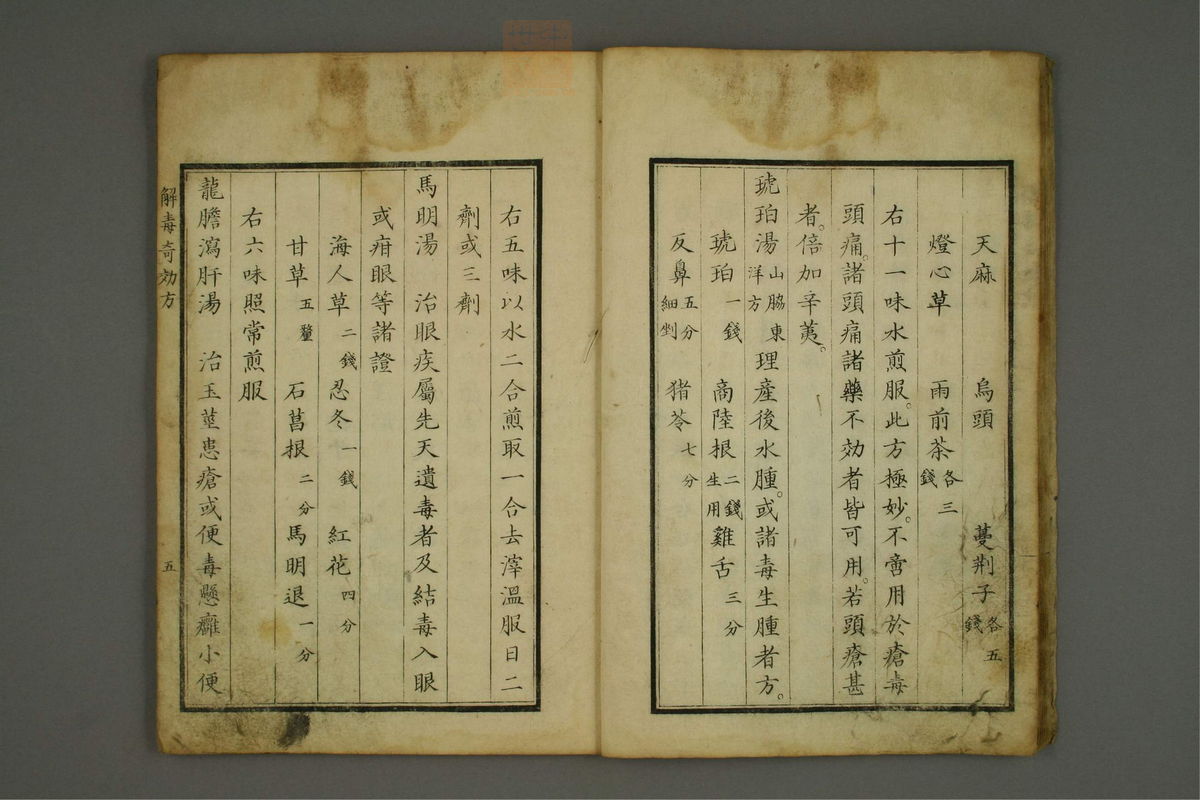 天麻　烏頭　蔓荆子各五錢
燈心草　雨前茶各三錢
右十一味水煎服。此方極妙。不啻用於瘡毒
頭痛。諸頭痛諸藥不効者皆可用。若頭瘡甚
者。倍加辛荑。
琥珀湯山脇東洋方理産後水腫。或諸毒生腫者方。
琥珀一錢　商陸根二錢生用雞舌三分
反鼻五分細剉　猪苓七分
右五味以水二合煎取一合去滓溫服日二
劑或三劑
馬明湯　治眼疾屬先天遺毒者及結毒入眼
或疳眼等諸證
海人草二錢忍冬一錢　紅花四分
甘草五釐　石菖根二分馬明退一分
右六味照常煎服
龍膽瀉肝湯　治玉莖患瘡或便毒懸癰小便
解毒奇効方　五